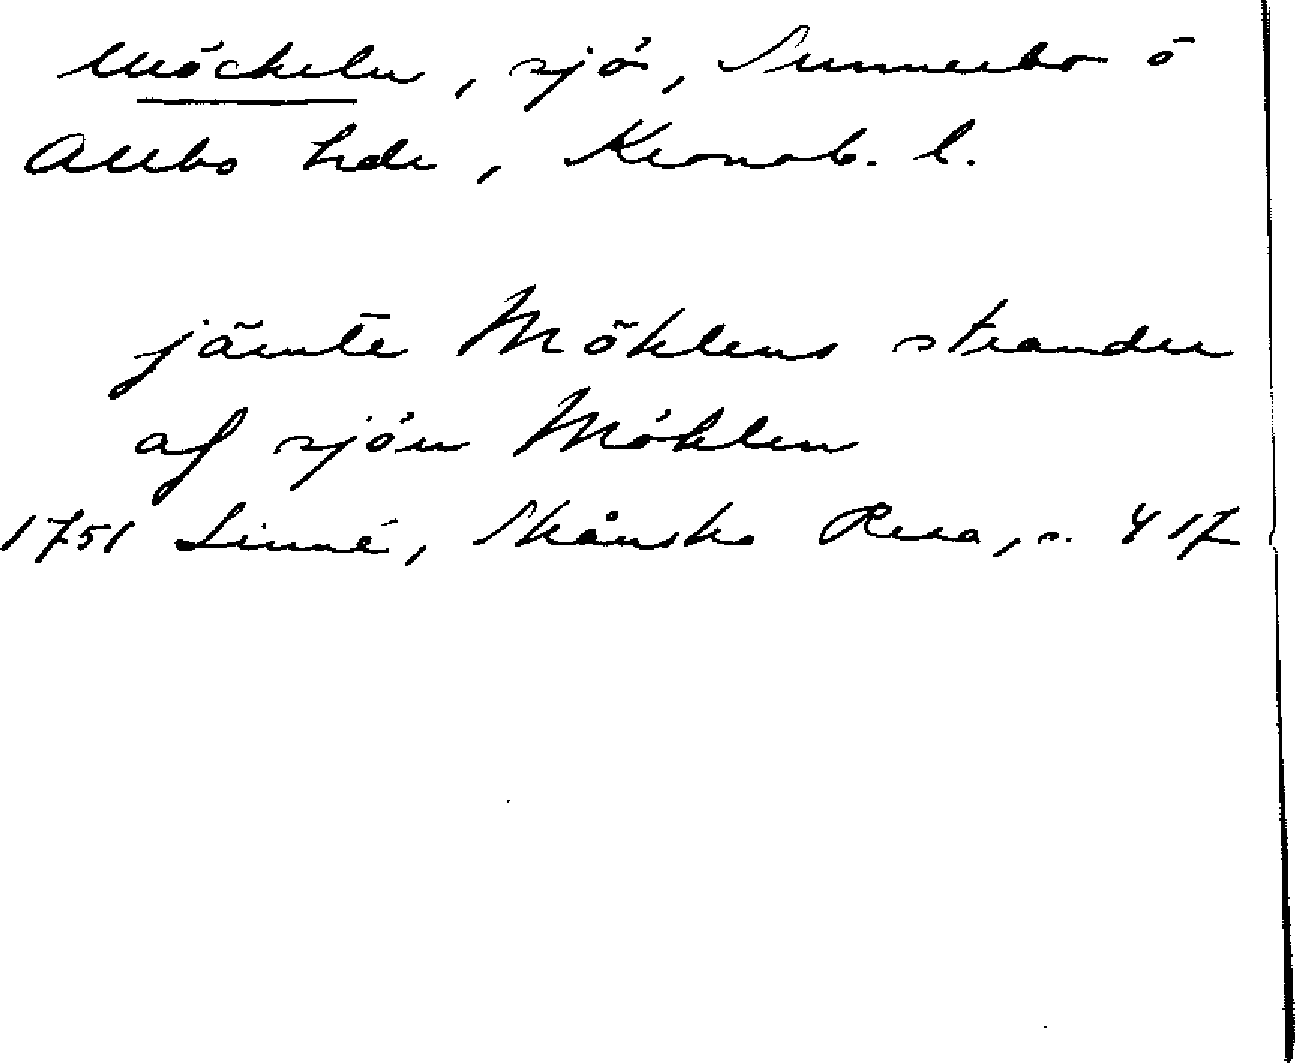 Möckeln, sjö, Sunnerbo o
Allbo hdr, Kronob. l.
jämte Möklens strander
af sjön Möklen
1751 Linné, Skånska Resa, s. 417